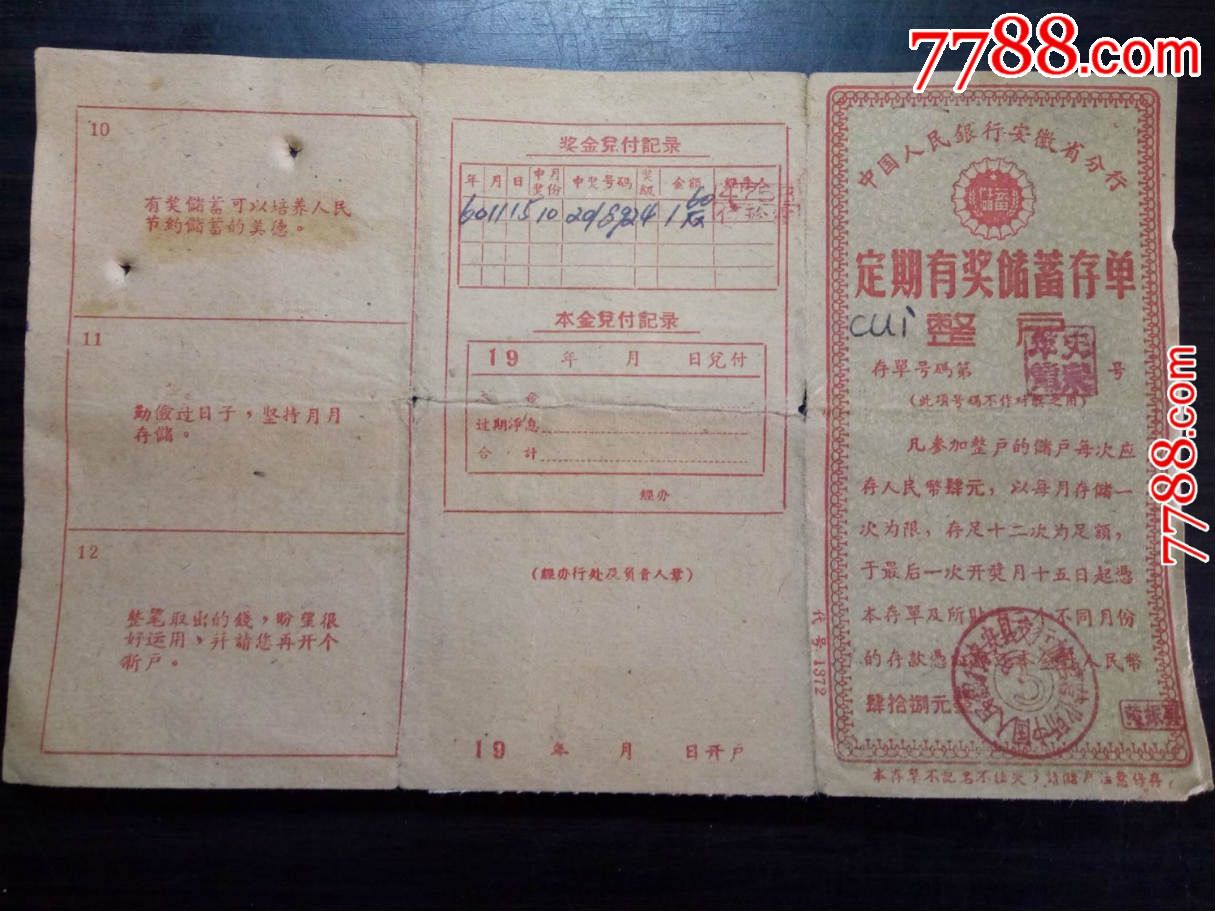 7788.com
10
有奖儲蓄可以培养人民
节約儲蓄的美德。
11
勤儉过日子，坚持月月
存儲。
12
整笔取出的錢，盼望很
好运用，并請您再开个
新戶。
奖金兌付記录
年 月 日 中奖月份 中奖号碼 奖級 金額
60 11 15 10 1
本金兌付記录
19 年 月 日兌付
过期净息
合計
經办
(經办行处及負責人章)
19 年 月 日开戶
代号1372
中国人民銀行安徽省分行
儲蓄
定期有奖儲蓄存单
cuì 整戶
存單号碼第 号
(此项号碼不作对奖之用)
凡参加整戶的儲戶每次应
存人民幣肆元，以每月存儲一
次为限，存足十二次为足額，
于最后一次开奖月十五日起憑
本存單及所貼 个不同月份
的存款憑 人民幣
肆拾捌元
3
本存單不記名不挂失，請儲戶注意保存
7788.com